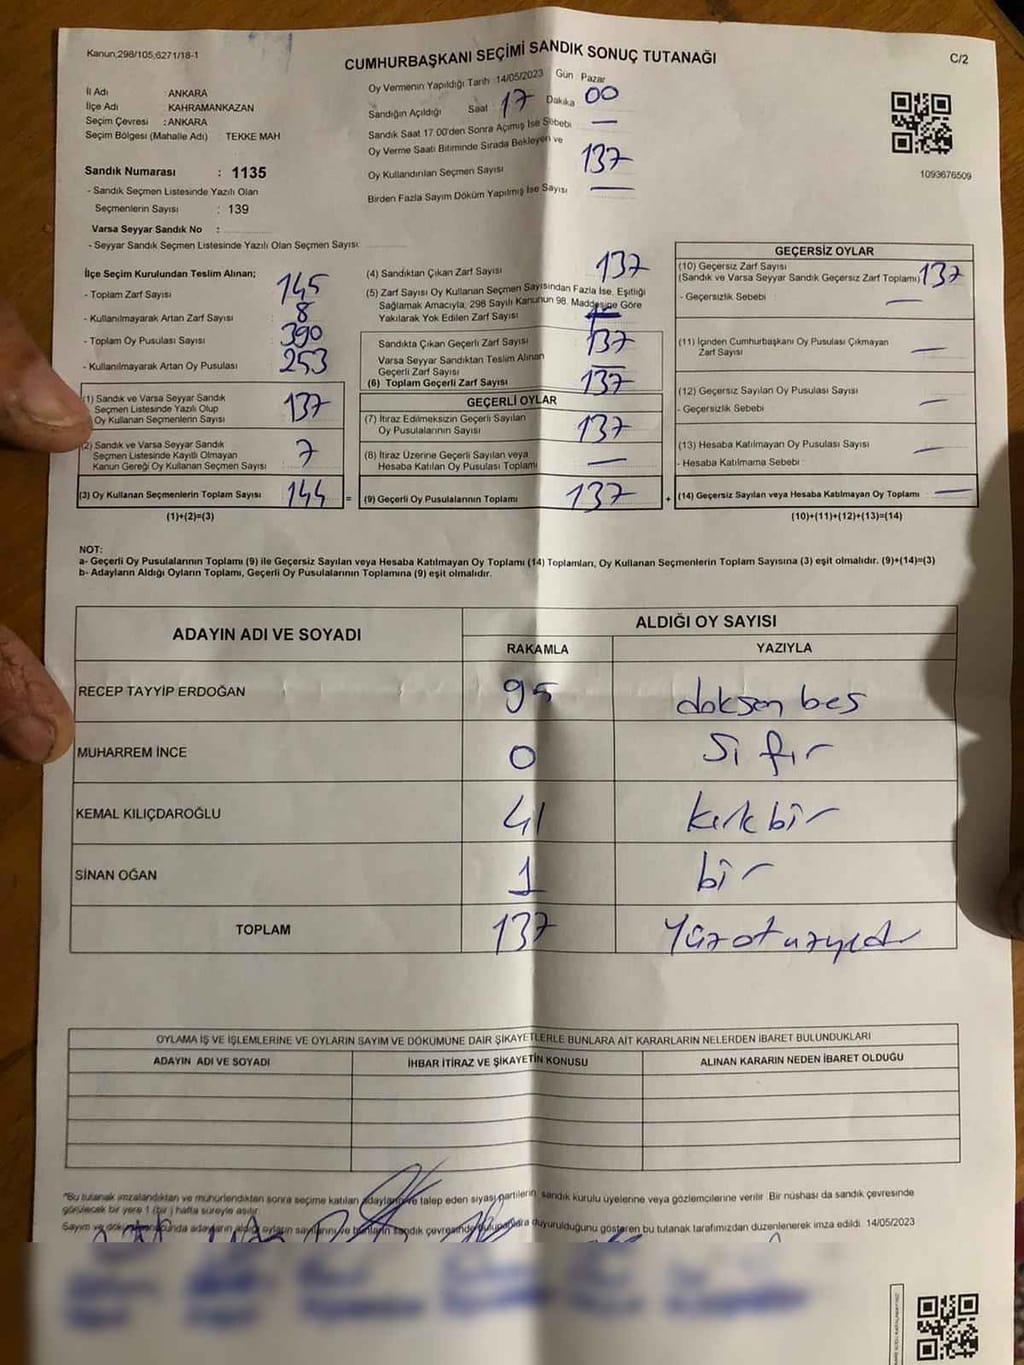 Kanun;298/105;6271/18-1
CUMHURBAŞKANI SEÇİMİ SANDIK SONUÇ TUTANAĞI
C/2
İl Adı : ANKARA
İlçe Adı : KAHRAMANKAZAN
Seçim Çevresi : ANKARA
Seçim Bölgesi (Mahalle Adı) TEKKE MAH
Sandık Numarası : 1135
- Sandık Seçmen Listesinde Yazılı Olan
Seçmenlerin Sayısı : 139
Varsa Seyyar Sandık No :
- Seyyar Sandık Seçmen Listesinde Yazılı Olan Seçmen Sayısı:
Oy Vermenin Yapıldığı Tarih :14/05/2023 Gün Pazar
Sandığın Açıldığı Saat 17 Dakika 00
Sandık Saat 17.00'den Sonra Açımış İse Sebebi —
Oy Verme Saati Bitiminde Sırada Bekleyen ve
Oy Kullandırılan Seçmen Sayısı 137
Birden Fazla Sayım Döküm Yapılmış İse Sayısı —
1093676509
İlçe Seçim Kurulundan Teslim Alınan;
- Toplam Zarf Sayısı 145
- Kullanılmayarak Artan Zarf Sayısı 8
- Toplam Oy Pusulası Sayısı 390
- Kullanılmayarak Artan Oy Pusulası 253
(1) Sandık ve Varsa Seyyar Sandık
Seçmen Listesinde Yazılı Olup
Oy Kullanan Seçmenlerin Sayısı 137
(2) Sandık ve Varsa Seyyar Sandık
Seçmen Listesinde Kayıtlı Olmayan
Kanun Gereği Oy Kullanan Seçmen Sayısı 7
(3) Oy Kullanan Seçmenlerin Toplam Sayısı 144 =
(1)+(2)=(3)
(4) Sandıktan Çıkan Zarf Sayısı 137
(5) Zarf Sayısı Oy Kullanan Seçmen Sayısından Fazla İse, Eşitliği
Sağlamak Amacıyla, 298 Sayılı Kanunun 98. Maddesine Göre
Yakılarak Yok Edilen Zarf Sayısı
Sandıkta Çıkan Geçerli Zarf Sayısı 137
Varsa Seyyar Sandıktan Teslim Alınan
Geçerli Zarf Sayısı —
(6) Toplam Geçerli Zarf Sayısı 137
GEÇERLİ OYLAR
(7) İtiraz Edilmeksizin Geçerli Sayılan
Oy Pusulalarının Sayısı 137
(8) İtiraz Üzerine Geçerli Sayılan veya
Hesaba Katılan Oy Pusulası Toplamı —
(9) Geçerli Oy Pusulalarının Toplamı 137 +
GEÇERSİZ OYLAR
(10) Geçersiz Zarf Sayısı
(Sandık ve Varsa Seyyar Sandık Geçersiz Zarf Toplamı) 137
- Geçersizlik Sebebi —
(11) İçinden Cumhurbaşkanı Oy Pusulası Çıkmayan
Zarf Sayısı —
(12) Geçersiz Sayılan Oy Pusulası Sayısı
- Geçersizlik Sebebi —
(13) Hesaba Katılmayan Oy Pusulası Sayısı —
- Hesaba Katılmama Sebebi
(14) Geçersiz Sayılan veya Hesaba Katılmayan Oy Toplamı —
(10)+(11)+(12)+(13)=(14)
NOT:
a- Geçerli Oy Pusulalarının Toplamı (9) ile Geçersiz Sayılan veya Hesaba Katılmayan Oy Toplamı (14) Toplamları, Oy Kullanan Seçmenlerin Toplam Sayısına (3) eşit olmalıdır. (9)+(14)=(3)
b- Adayların Aldığı Oyların Toplamı, Geçerli Oy Pusulalarının Toplamına (9) eşit olmalıdır.
ADAYIN ADI VE SOYADI
ALDIĞI OY SAYISI
RAKAMLA YAZIYLA
RECEP TAYYİP ERDOĞAN 95 doksan beş
MUHARREM İNCE 0 Sıfır
KEMAL KILIÇDAROĞLU 41 kırkbir
SİNAN OĞAN 1 bir
TOPLAM 137 Yüzotuzyedi
OYLAMA İŞ VE İŞLEMLERİNE VE OYLARIN SAYIM VE DÖKÜMÜNE DAİR ŞİKAYETLERLE BUNLARA AİT KARARLARIN NELERDEN İBARET BULUNDUKLARI
ADAYIN ADI VE SOYADI İHBAR İTİRAZ VE ŞİKAYETİN KONUSU ALINAN KARARIN NEDEN İBARET OLDUĞU
*Bu tutanak imzalandıktan ve mühürlendikten sonra seçime katılan adayların ve talep eden siyasi partilerin sandık kurulu üyelerine veya gözlemcilerine verilir. Bir nüshası da sandık çevresinde
görülecek bir yere 1 (bir ) hafta süreyle asılır.
Sayım ve döküm sonunda adayların aldığı oyların sayılarını ve bunların sandık çevresinde bulunanlara duyurulduğunu gösteren bu tutanak tarafımızdan düzenlenerek imza edildi. 14/05/2023